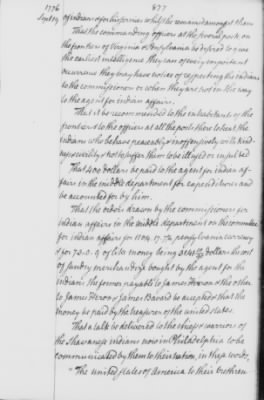 1776
Sept 19
877
of indians or for his services whilst he remained amongst them
That the commanding officers at the several posts on
the frontiers of Virginia & Pensylvania be desired to give
the earliest intelligence they can of every important
occurrence they may have notice of respecting the indians
to the commissioners or when they are not in the way
to the agent for indian affairs.
That it be recommended to the inhabitants of the
frontiers & to the officers at all the posts there to treat the
indians who behave peaceably & inoffensively with kind-
ness & civility & not to suffer them to be ill used or insulted
That 200 dollars be paid to the agent for indian af-
fairs in the middle department for expenditures and
be accounted for by him.
That the orders drawn by the commissioners for
indian affairs in the middle department on the committee
for indian affairs for 1104. 17. 7½ pensylvania currency
& for 73.0.9 of like money being dollars the cost
of sundry merchandize bought by the agent for the
indians the former payable to James Heron & the other
to James Heron & James Bavard be accepted & that the
money be paid by the treasurer of the united states.
That a talk be delivered to the chiefs & warriors of
the Shawanese indians now in Philadelphia to be
communicated by them to their nation, in these words,
"The united states of America to their brethren